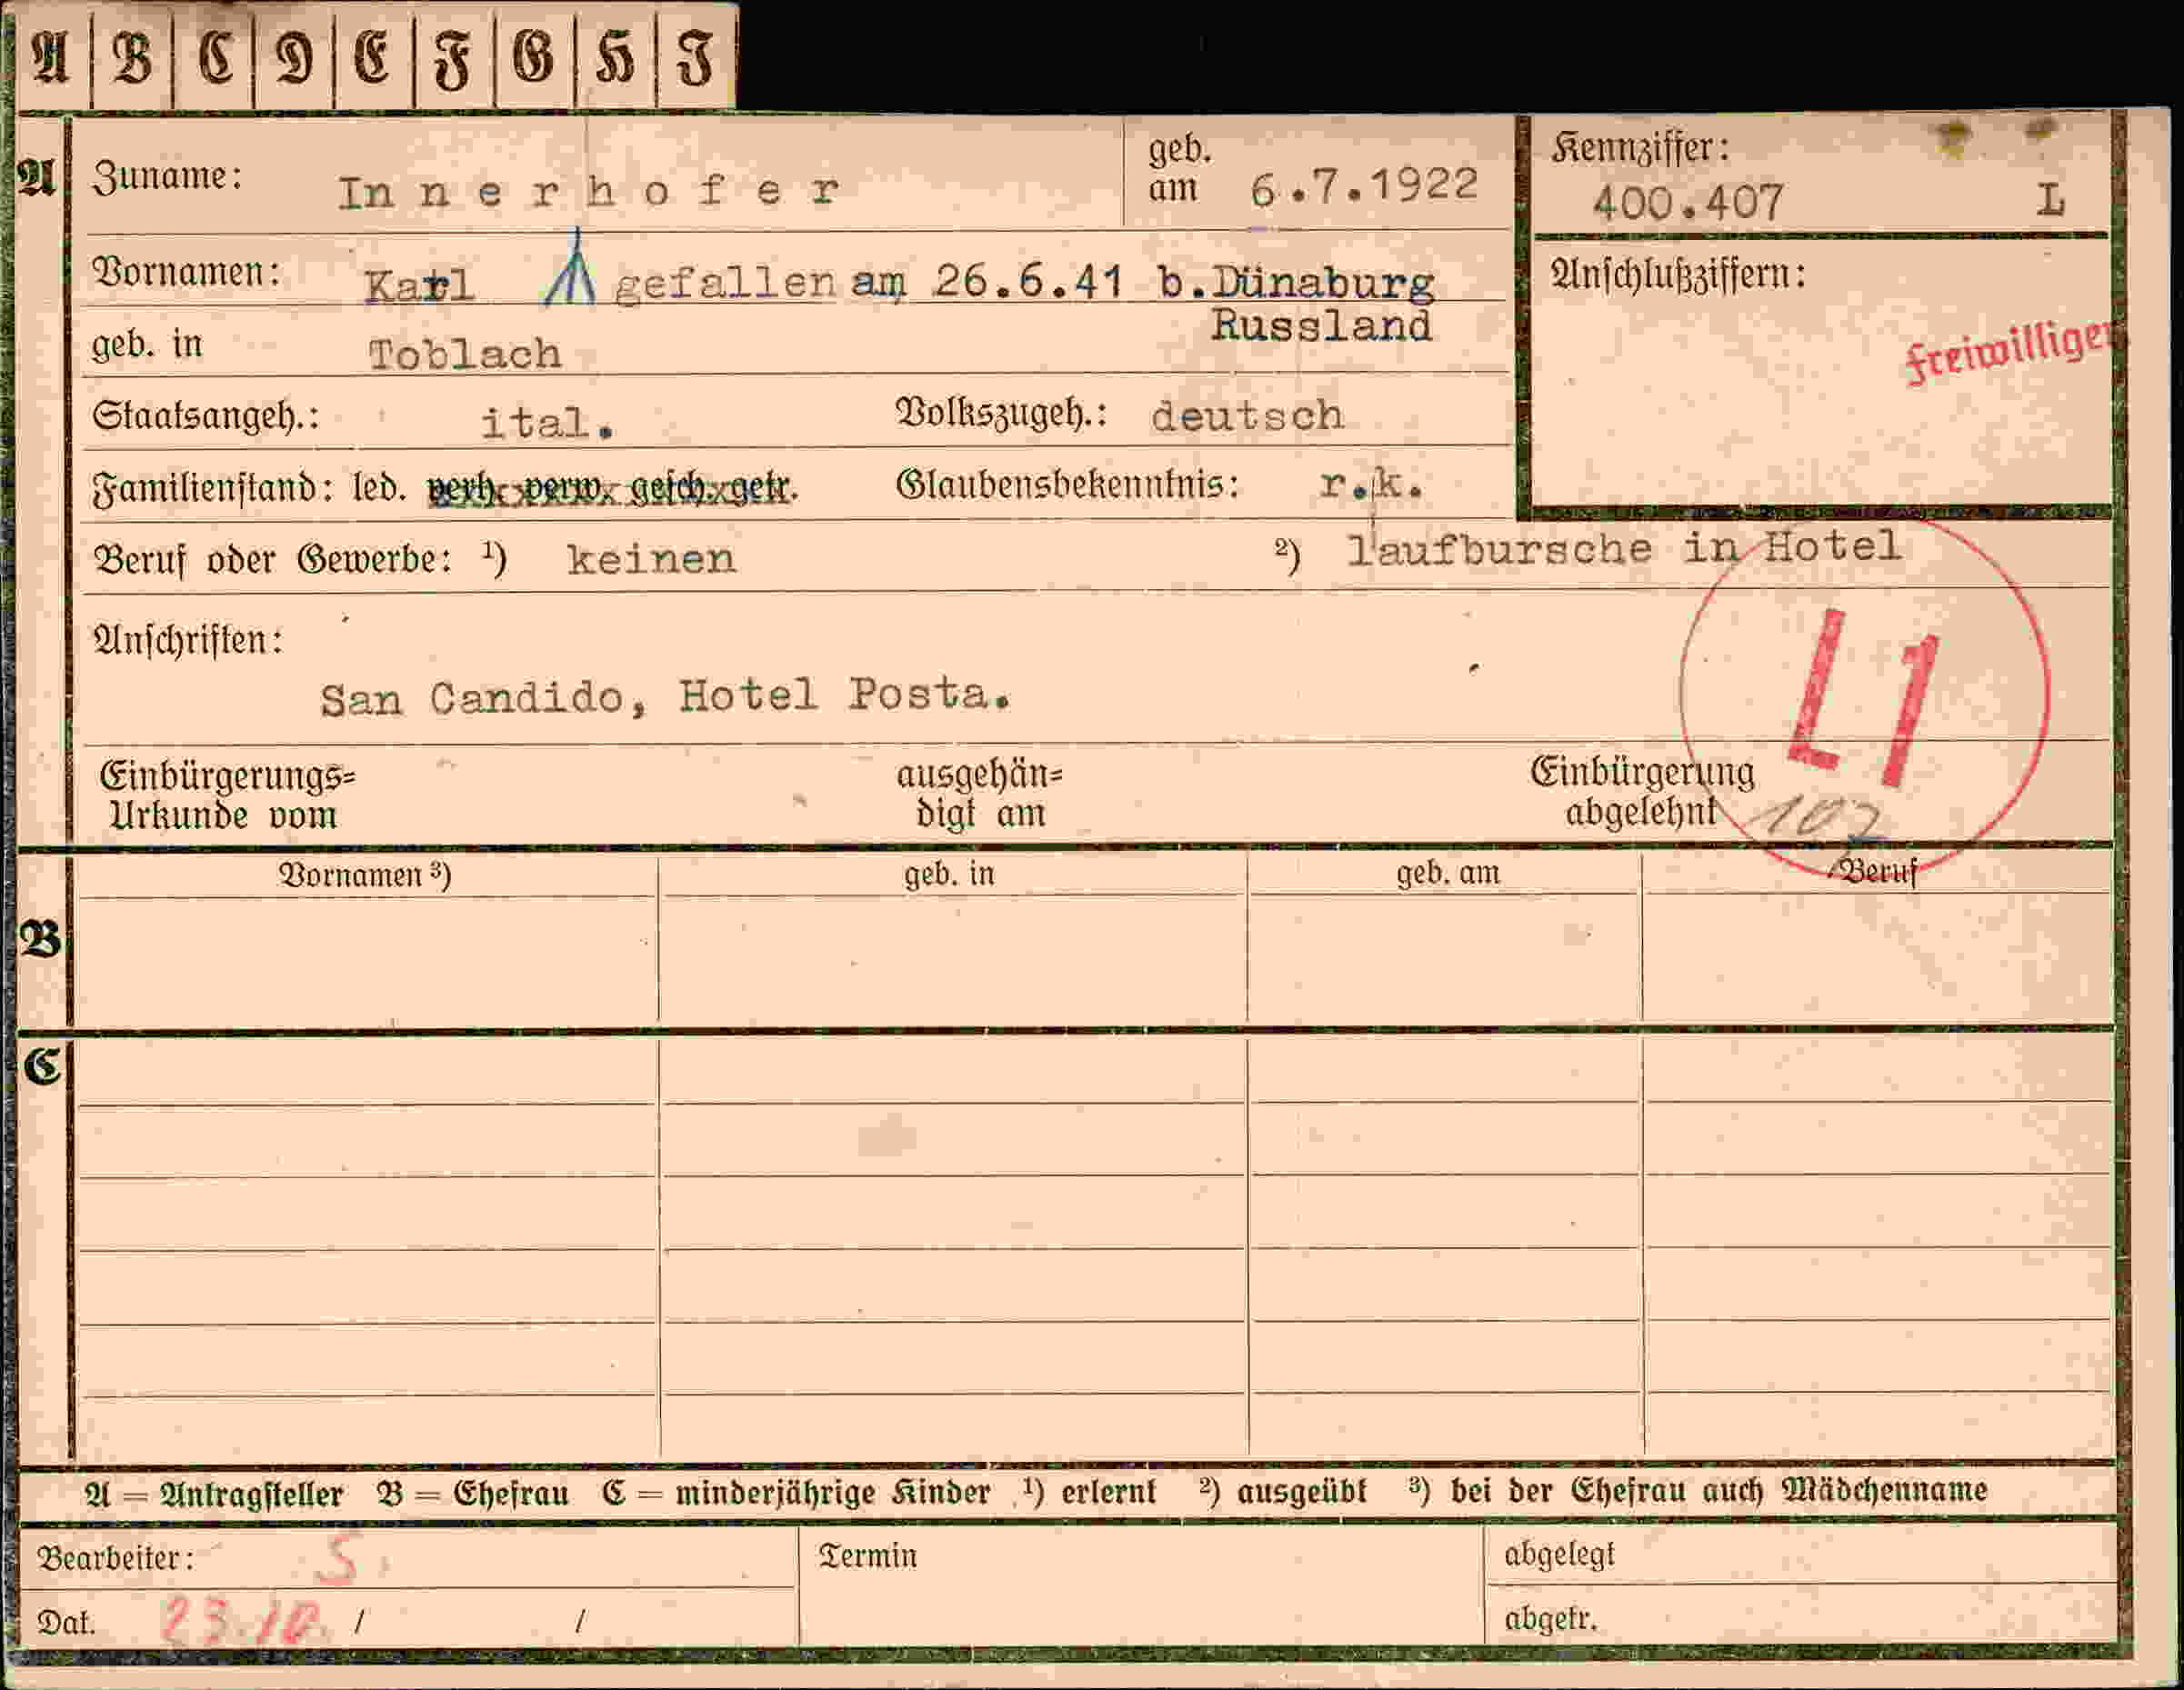 A B C D E F G H J
A Zuname: Innerhofer geb. am 6.7.1922 Kennziffer: 400.407 L
Vornamen: Karl gefallen am 26.6.41 b.Dünaburg Anschlußziffern:
Russland
Freiwilliger
geb. in Toblach
Staatsangeh.: ital. Volkszugeh.: deutsch
Familienstand: led. verh. verw. gesch. getr. Glaubensbekenntnis: r.k.
Beruf oder Gewerbe: ¹) keinen ²) laufbursche in Hotel
Anschriften:
L1
San Candido, Hotel Posta.
Einbürgerungs= ausgehän= Einbürgerung
Urkunde vom digt am abgelehnt 107
Vornamen ³) geb. in geb. am Beruf
B
C
A = Antragsteller B = Ehefrau C = minderjährige Kinder ¹) erlernt ²) ausgeübt ³) bei der Ehefrau auch Mädchenname
Bearbeiter: S. Termin abgelegt
Dat. 23.10. / / abgetr.